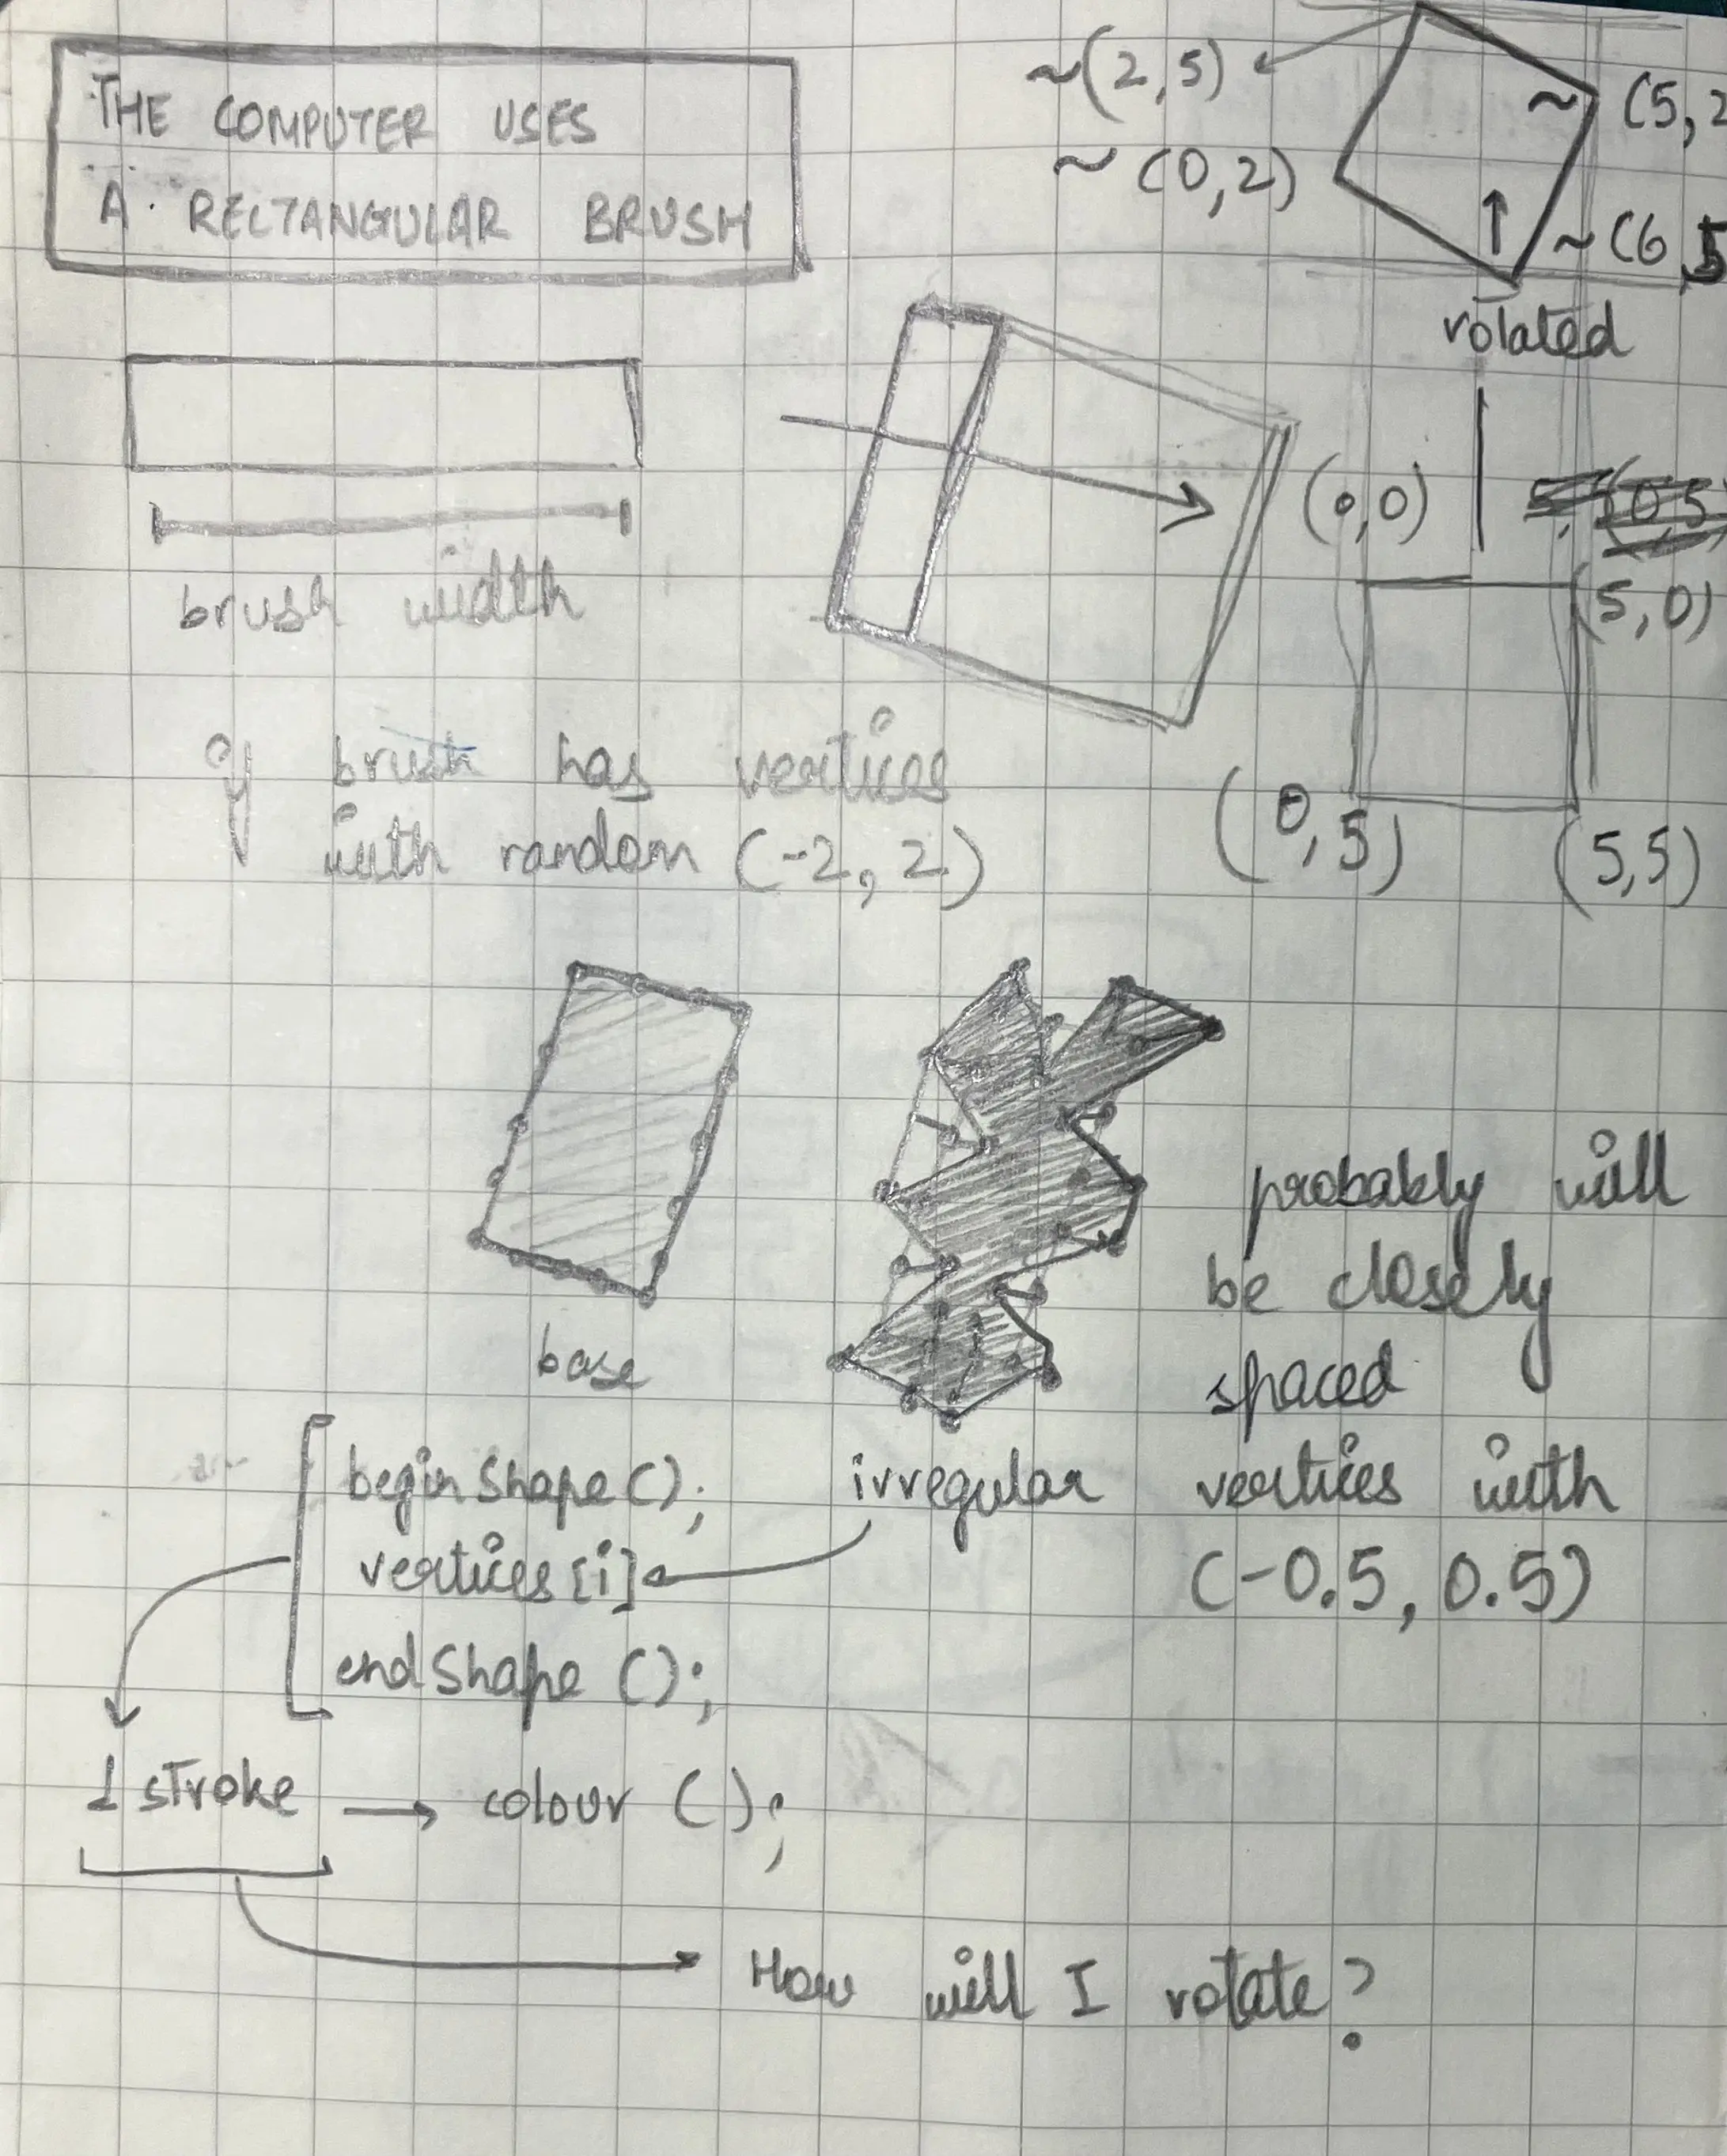 THE COMPUTER USES
A RECTANGULAR BRUSH
~(2,5)
~(5,2
~(0,2)
~(6,5
rotated
brush width
(0,0)
(5,0)
(0,5)
(5,5)
if brush has vertices
with random (-2, 2)
base
irregular
probably will
be closely
spaced
vertices with
(-0.5, 0.5)
beginShape();
vertices[i]
endShape();
1 stroke → colour();
How will I rotate?